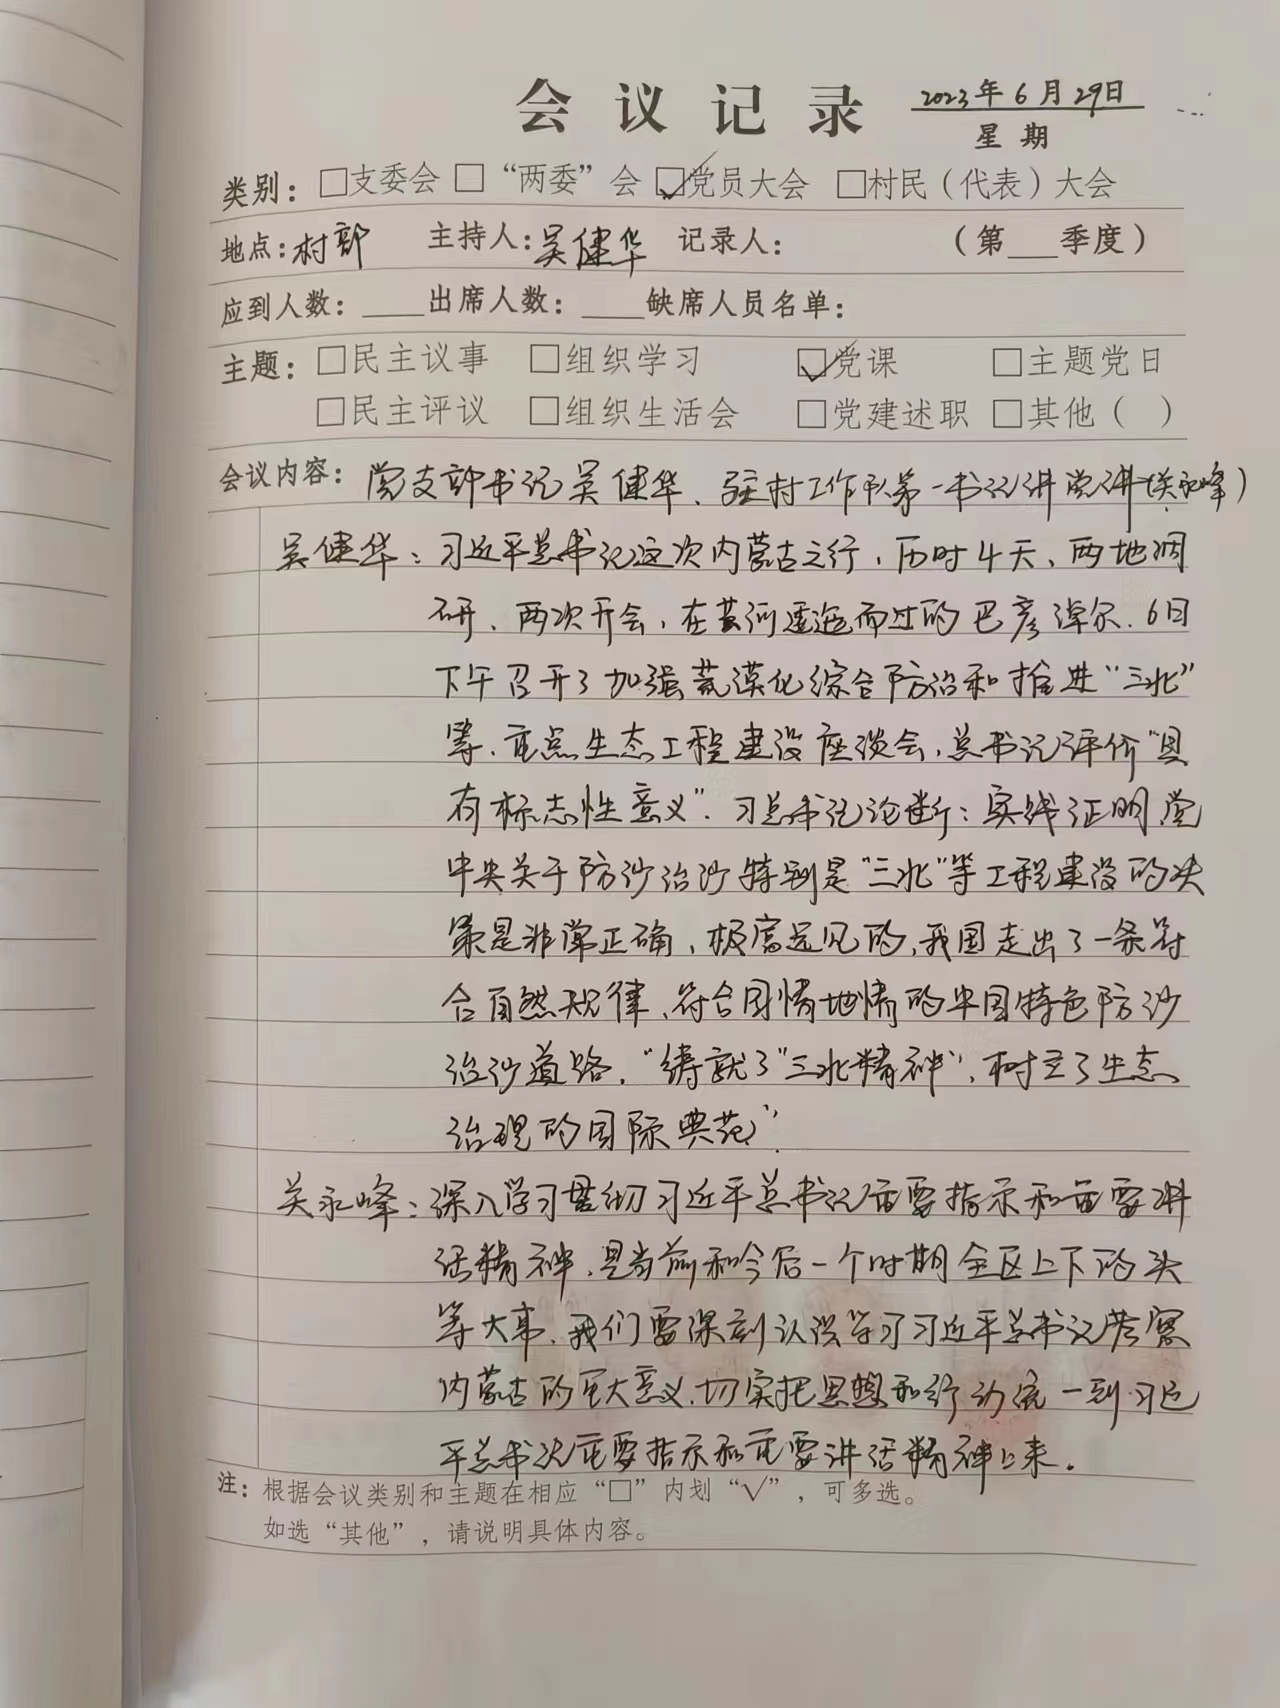 会议记录 2023年6月29日
星期
类别：□支委会 □“两委”会 ☑党员大会 □村民（代表）大会
地点：村部 主持人：吴健华 记录人： （第___季度）
应到人数：____出席人数：____缺席人员名单：
主题：□民主议事 □组织学习 ☑党课 □主题党日
□民主评议 □组织生活会 □党建述职 □其他（ ）
会议内容：党支部书记吴健华、驻村工作队第一书记讲党课（关永峰）
吴健华：习近平总书记这次内蒙古之行，历时4天、两地调
研、两次开会，在黄河逶迤而过的巴彦淖尔．6日
下午召开了加强荒漠化综合防治和推进“三北”
等．重点生态工程建设座谈会，总书记评价“具
有标志性意义”．习总书记论断：实践证明党
中央关于防沙治沙特别是“三北”等工程建设的决
策是非常正确、极富远见的，我国走出了一条符
合自然规律、符合国情地情的中国特色防沙
治沙道路．“铸就了“三北精神”，树立了生态
治理的国际典范”
关永峰：深入学习贯彻习近平总书记重要指示和重要讲
话精神，是当前和今后一个时期全区上下的头
等大事，我们要深刻认识学习习近平总书记考察
内蒙古的重大意义，切实把思想和行动统一到习近
平总书记重要指示和重要讲话精神上来。
注：根据会议类别和主题在相应“□”内划“√”，可多选。
如选“其他”，请说明具体内容。